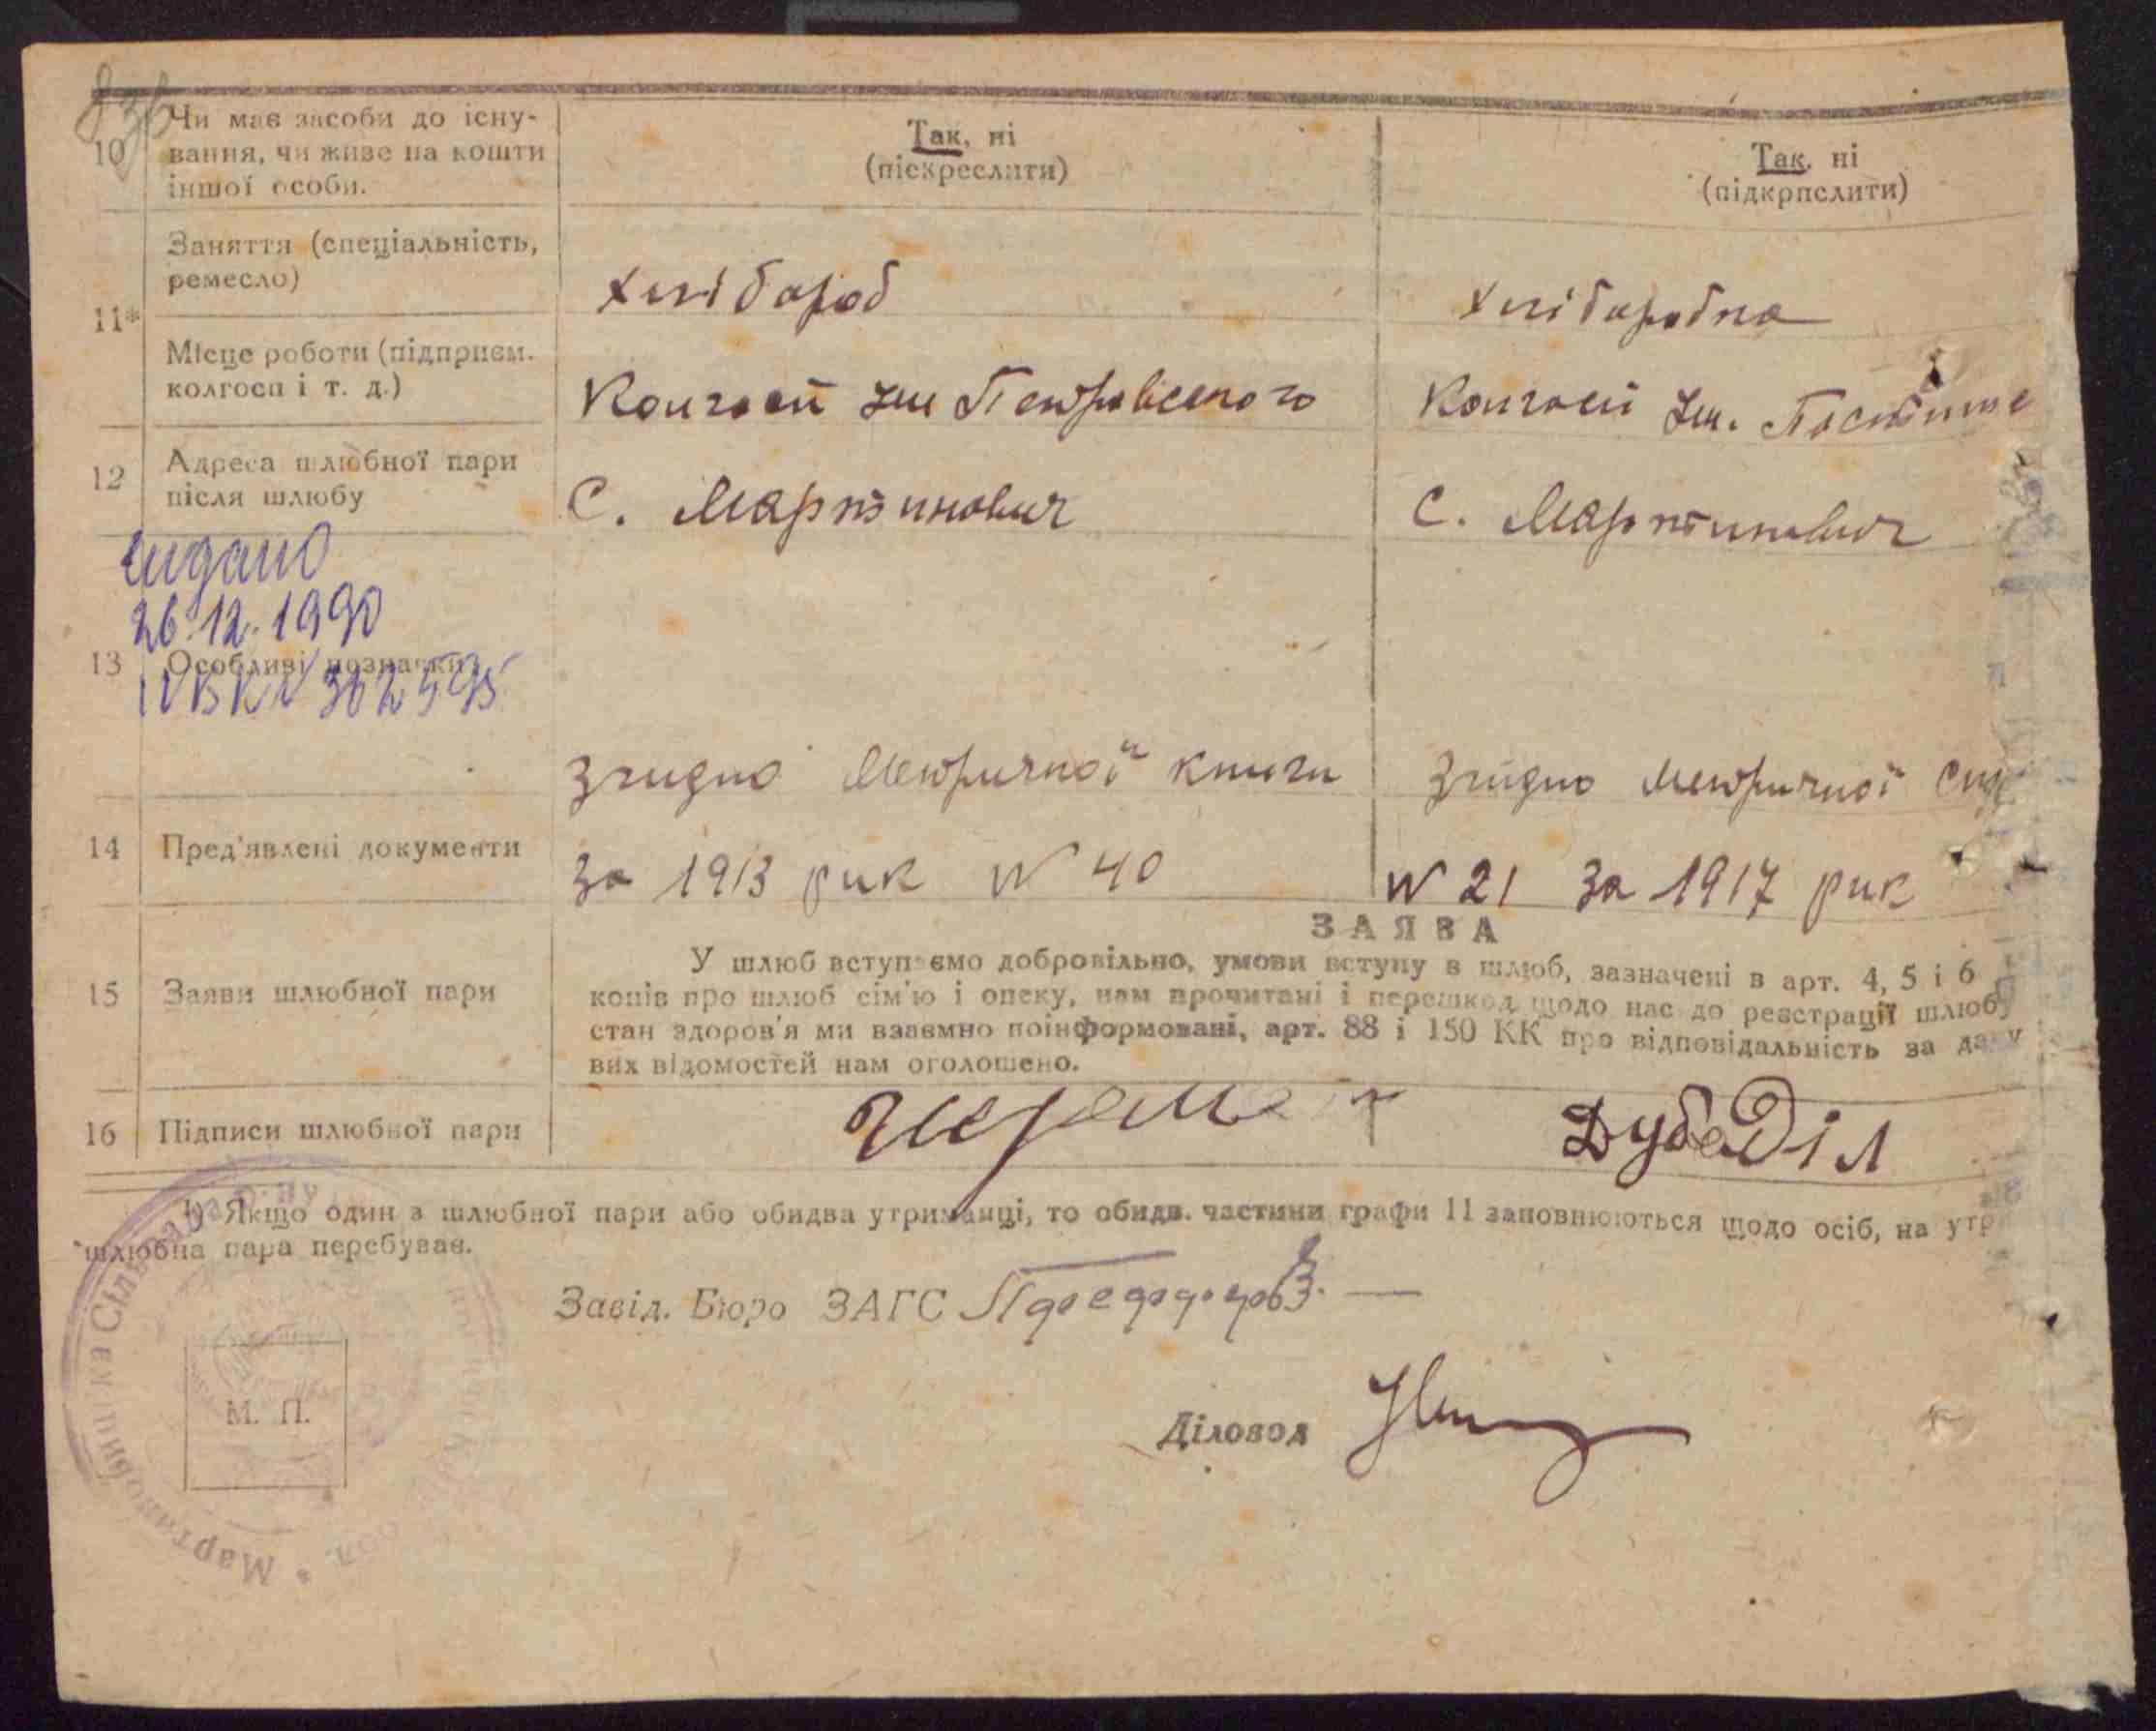 10 Чи має засоби до існу-
вання, чи живе на кошти
іншої особи.
Так, ні
(піскреслити)
Так, ні
(підкрпслити)
11*
Заняття (спеціальність,
ремесло)
Хлібароб
Хлібаробка
Місце роботи (підприєм.
колгосп і т. д.)
Колгосп Ім Петровського
Колгосп Ім. Постише
12 Адреса шлюбної пари
після шлюбу
С. Мартинович
С. Мартинович
видано
26.12.1990
13 Особливі позначки
14 Пред'явлені документи
Згидно Метричної книги
За 1913 рик N 40
Згидно метричної
N 21 За 1917 рик
ЗАЯВА
15 Заяви шлюбної пари
У шлюб вступаємо добровільно, умови вступу в шлюб, зазначені в арт. 4, 5 і 6
копів про шлюб сім'ю і опеку, нам прочитані і перешкод щодо нас до реєстрації шлюбу
стан здоров'я ми взаємно поінформовані, арт. 88 і 150 КК про відповідальність за
вих відомостей нам оголошено.
16 Підписи шлюбної пари
Дубоділ
¹) Якщо один з шлюбної пари або обидва утриманці, то обидв. частини графи 11 заповнюються щодо осіб, на утр
шлюбна пара перебуває.
Завід. Бюро ЗАГС
М. П.
Діловод